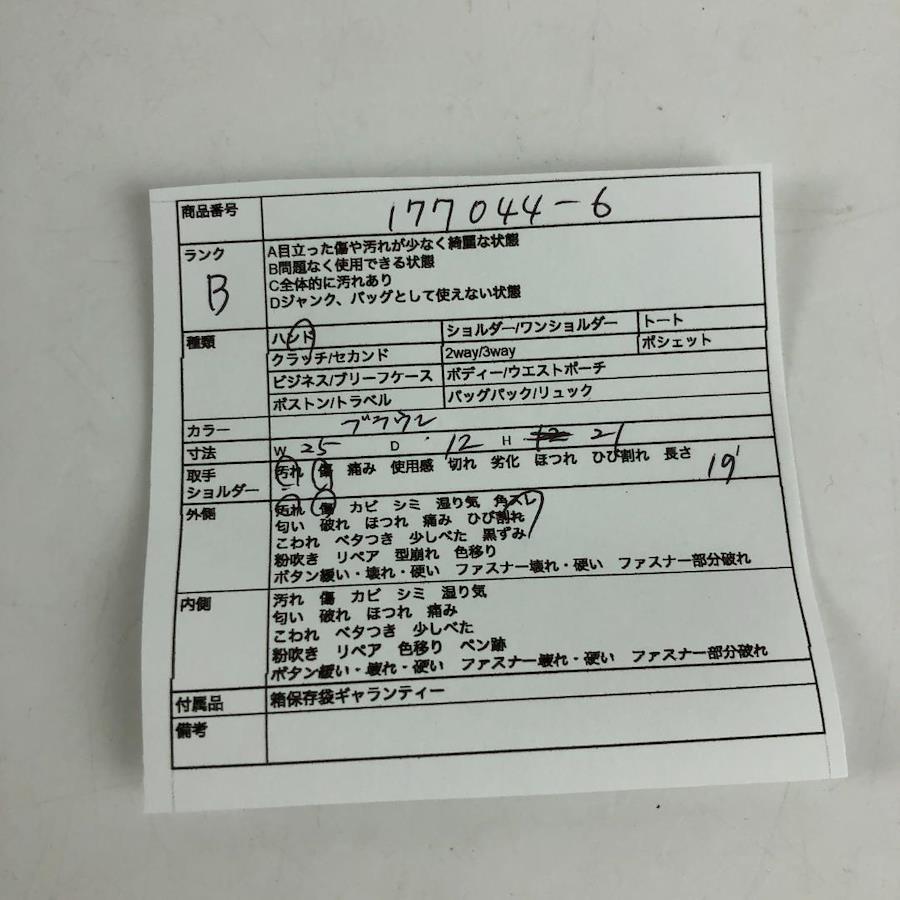 商品番号 177044-6
ランク B
A目立った傷や汚れが少なく綺麗な状態
B問題なく使用できる状態
C全体的に汚れあり
Dジャンク、バッグとして使えない状態
種類 ハンド ショルダー/ワンショルダー トート
クラッチ/セカンド 2way/3way ポシェット
ビジネス/ブリーフケース ボディー/ウエストポーチ
ボストン/トラベル バッグパック/リュック
カラー ブラウン
寸法 W 25 D 12 H 21
取手 ショルダー 汚れ 傷 痛み 使用感 切れ 劣化 ほつれ ひび割れ 長さ 19
外側 汚れ 傷 カビ シミ 湿り気 角スレ
匂い 破れ ほつれ 痛み ひび割れ
こわれ ベタつき 少しべた 黒ずみ
粉吹き リペア 型崩れ 色移り
ボタン緩い・壊れ・硬い ファスナー壊れ・硬い ファスナー部分破れ
内側 汚れ 傷 カビ シミ 湿り気
匂い 破れ ほつれ 痛み
こわれ ベタつき 少しべた
粉吹き リペア 色移り ペン跡
ボタン緩い・壊れ・硬い ファスナー壊れ・硬い ファスナー部分破れ
付属品 箱保存袋ギャランティー
備考